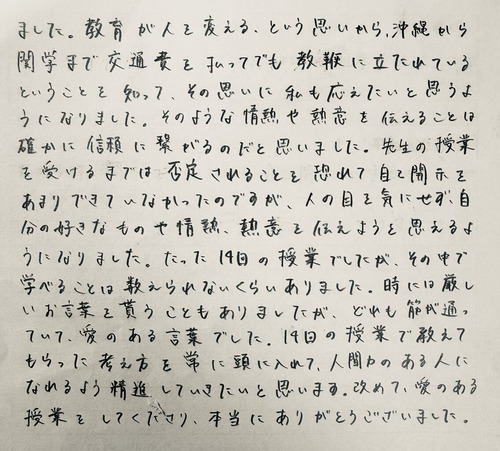 ました。教育が人を変える、という思いから、沖縄から
関学まで交通費を払ってでも教鞭に立たれている
ということを知って、その思いに私も応えたいと思うよ
うになりました。そのような情熱や熱意を伝えることは
確かに信頼に繋がるのだと思いました。先生の授業
を受けるまでは否定されることを恐れて自己開示を
あまりできていなかったのですが、人の目を気にせず、自
分の好きなものや情熱、熱意を伝えようと思えるよ
うになりました。たった14日の授業でしたが、その中で
学べることは数えられないくらいありました。時には厳し
いお言葉を貰うこともありましたが、どれも筋が通っ
ていて、愛のある言葉でした。14日の授業で教えて
もらった考え方を常に頭に入れて、人間力のある人に
なれるよう精進していきたいと思います。改めて、愛のある
授業をしてくださり、本当にありがとうございました。